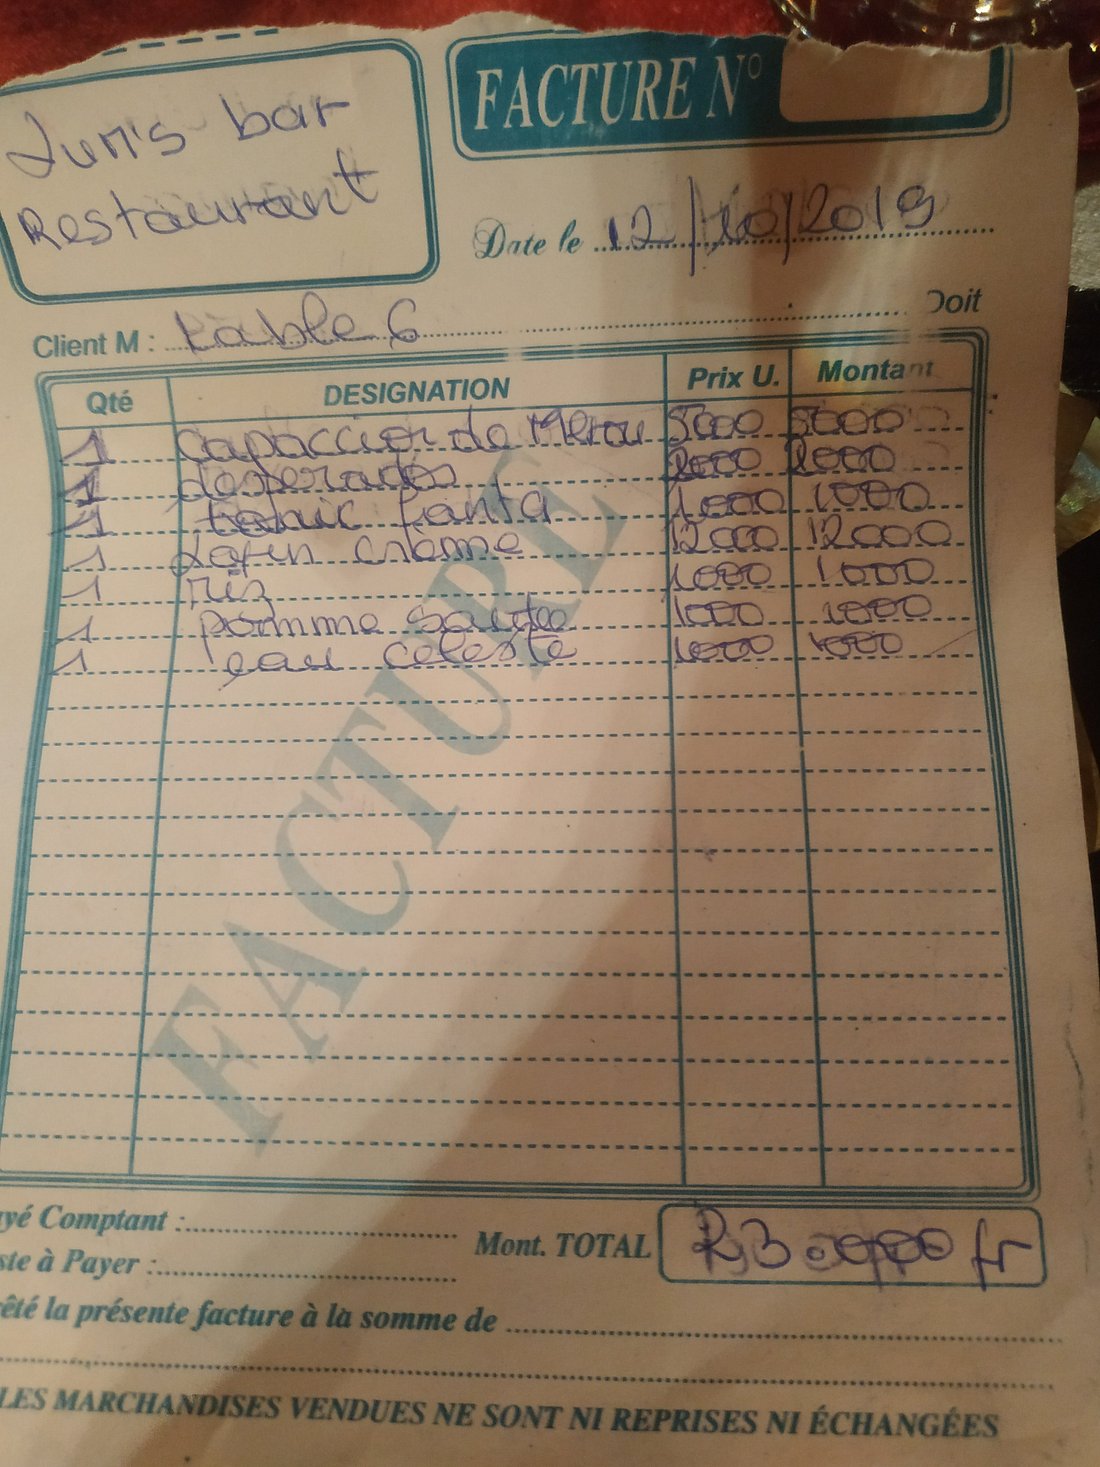 bar
Restaurant
FACTURE N°
Date le 12/10/2019
Client M : table 6 Doit
Qté DESIGNATION Prix U. Montant
1 Capaccior de Merou 5000 5000
1 desperados 2000 2000
1 tonic fanta 1000 1000
1 12000 12000
1 riz 1000 1000
1 pomme sautée 1000 1000
1 eau celeste 1000 1000
FACTURE
yé Comptant :
ste à Payer :
Mont. TOTAL 23.000 fr
êté la présente facture à la somme de
LES MARCHANDISES VENDUES NE SONT NI REPRISES NI ÉCHANGÉES